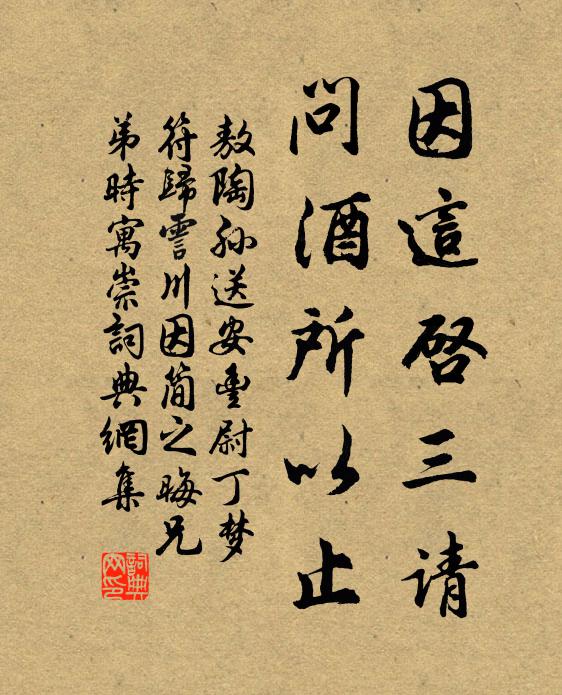 因這啓三请
問酒所以止
敖陶孙送安豊尉丁梦
符歸霅川因简之晦兄
弟時寓崇詞典網集
詞典网印